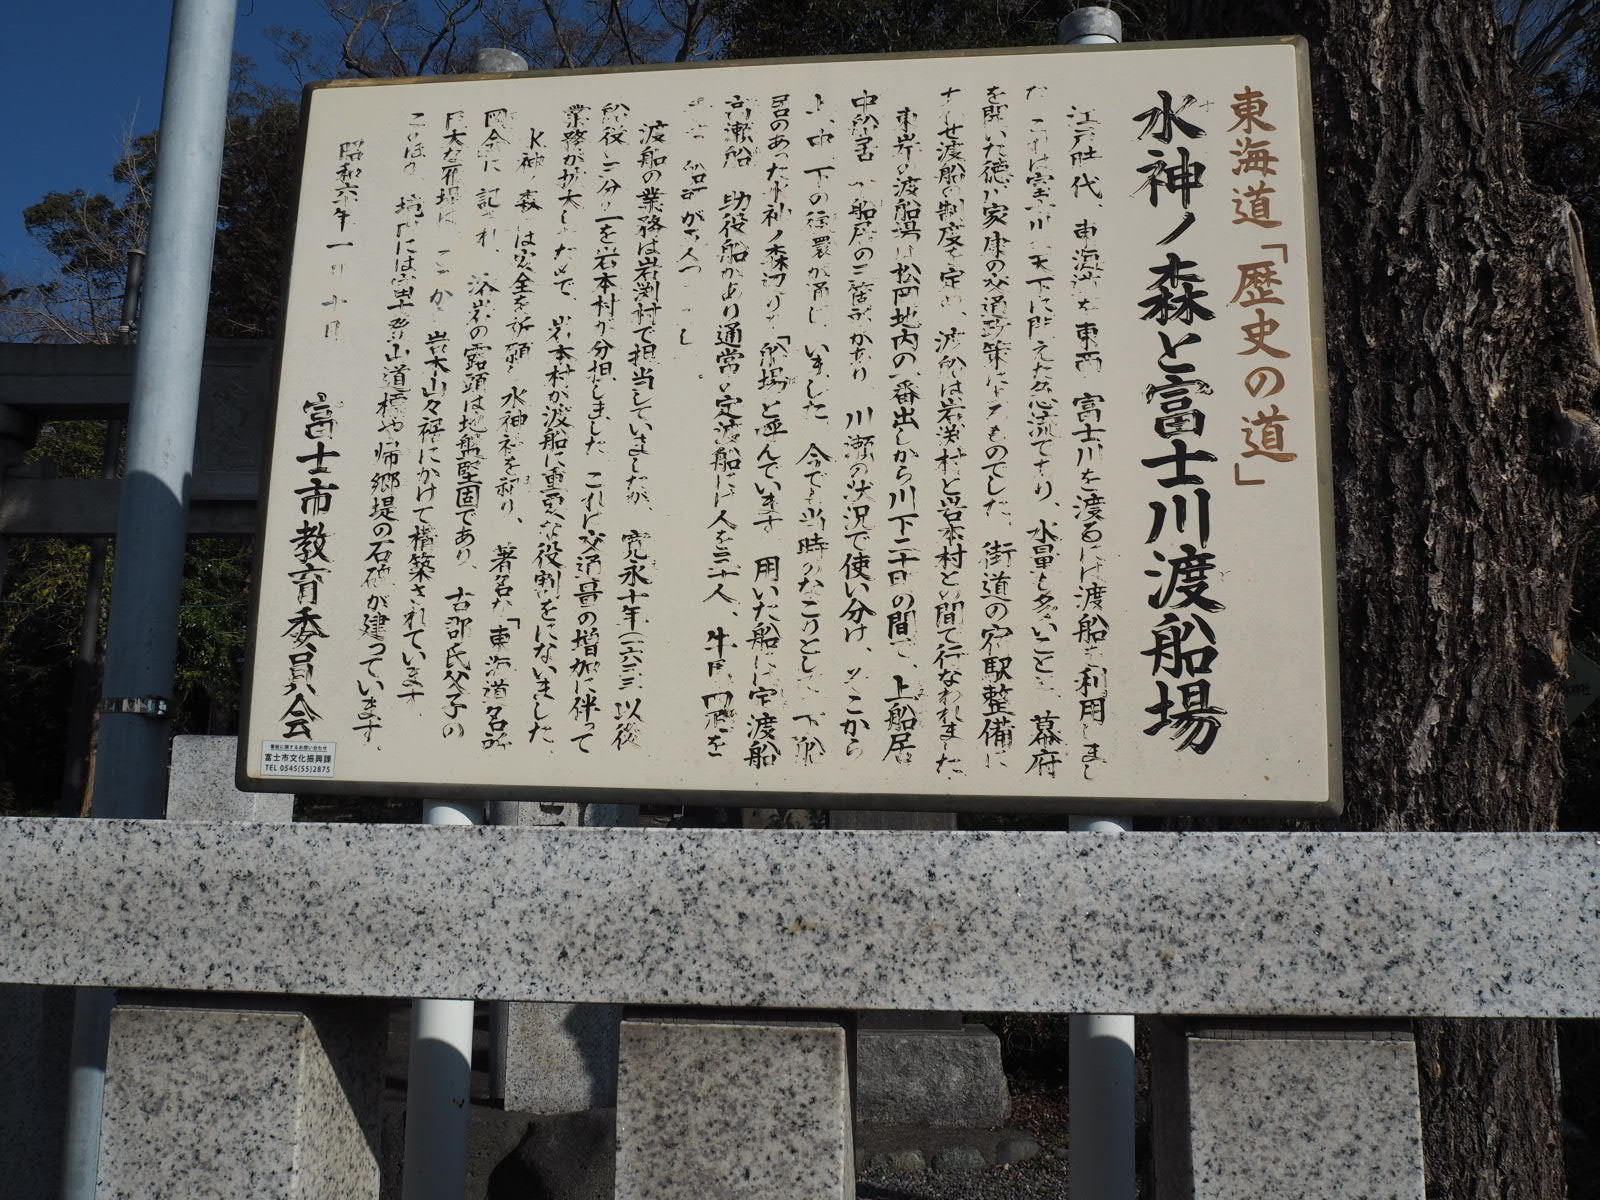 東海道「歴史の道」
水神ノ森と富士川渡船場
江戸時代、東海道を東西 富士川を渡るには渡船を利用しまし
た これは富士川 天下に聞えた急流であり、水量も多いこと 、幕府
を開いた徳川家康の交通政策によるものでした、街道の宿駅整備に
せ渡船の制度を定め、渡船は岩渕村と岩本村との間で行なわれました
東岸の渡船場は松岡地内の一番出しから川下二十 の間で、上船居
中船居 船居の三箇所があり、川瀬の状況で使い分け、そこから
上、中、下の往還が通じ いました、今でも当時のなごりとして 下船
居のあった水神ノ森辺りを「船場」と呼んでいます 用いた船は定渡船
高瀬船 助役船があり通常の定渡船には人を三十人、牛馬四疋を
船頭が五人
渡船の業務は岩渕村で担当していましたが、寛永十年(一六三三 以後
船役 三分の一を岩本村が分担しました これは交通量の増加に伴って
業務が拡大したためで、岩本村が渡船に重要な役割をにないました
水神ノ森 は安全を祈願し水神社を祀り、著名な「東海道名所
図会に 記され、溶岩の露頭は地盤堅固であり、古郡氏父子の
巨大な雁堤は ここから岩本山々裾にかけて構築されています
このほか、境内には富士登山道標や帰郷堤の石碑が建っています。
昭和六 年 一 月 十 日
富士市教育委員会
看板に関するお問い合わせ
富士市文化振興課
TEL 0545(55)2875